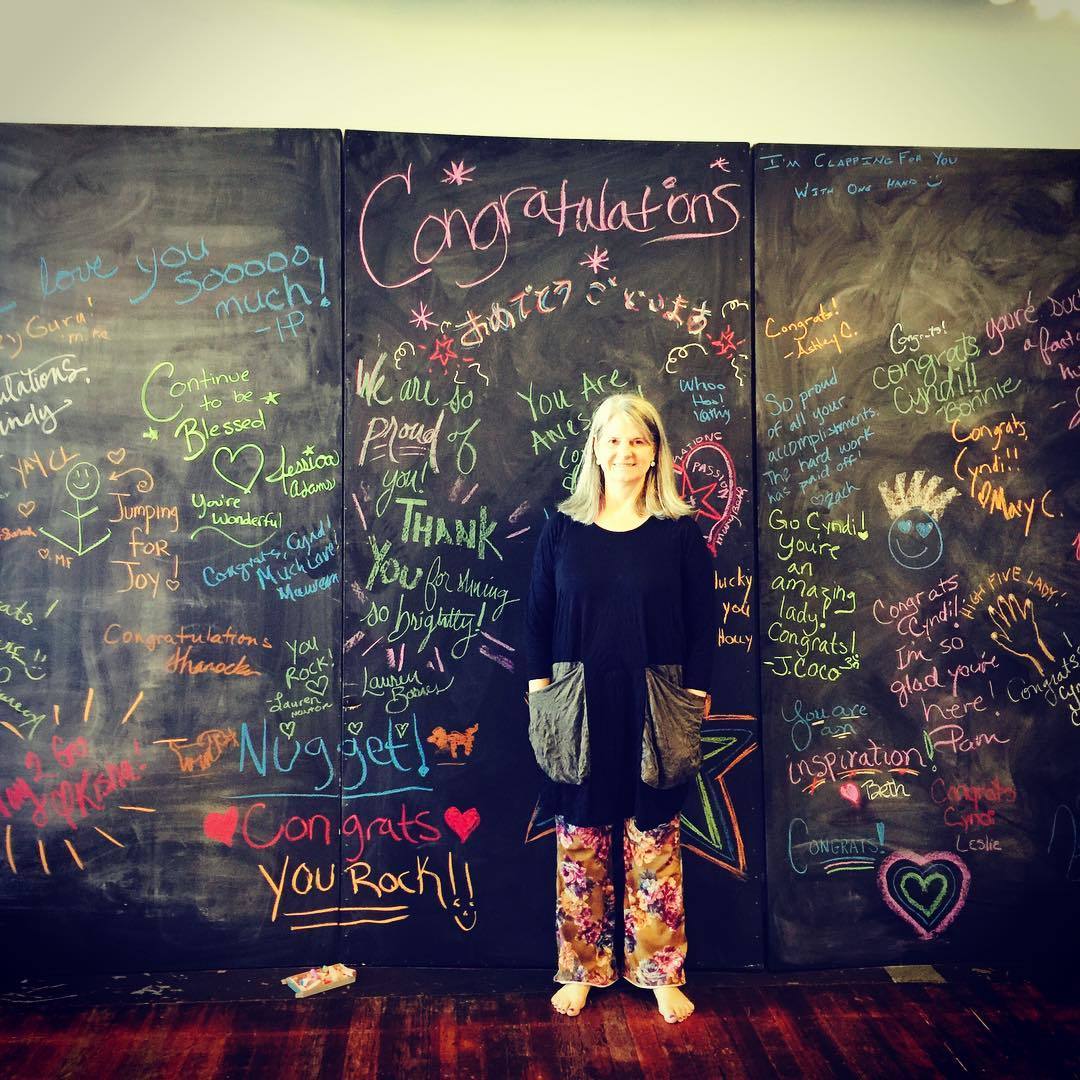 love you
sooooo
much!
-HP
Guru!
Continue
to be
Blessed
Jessica
Adams
You're
Wonderful
Jumping
for
Joy!
MF
Sarah
Congrats, Cyndi
Much Love!
Maureen
Congratulations
You
Rock!
Lauren
Nugget!
Congrats
You Rock!!
Congratulations
おめでとうございます
We are so
Proud of
you!
Thank
You for shining
so brightly!
Lauren
You Are
Whoo
Hoo!
Kathy
Passion
lucky
you
Holly
I'm Clapping For You
With One Hand
Congrats!
- Ashley C.
Congrats!
Congrats
Cyndi!!
Bonnie
you're
So proud
of all your
accomplishments.
The hard work
has paid off!
Zach
Congrats,
Cyndi!!
Mary C.
Go Cyndi!
You're
an
amazing
lady!
Congrats!
-J.Coco
Congrats
Cyndi!
I'm so
glad you're
here!
Pam
High Five Lady!
Congrats!
You are
an
inspiration!
Beth
Congrats
Cyndi
Leslie
Congrats!